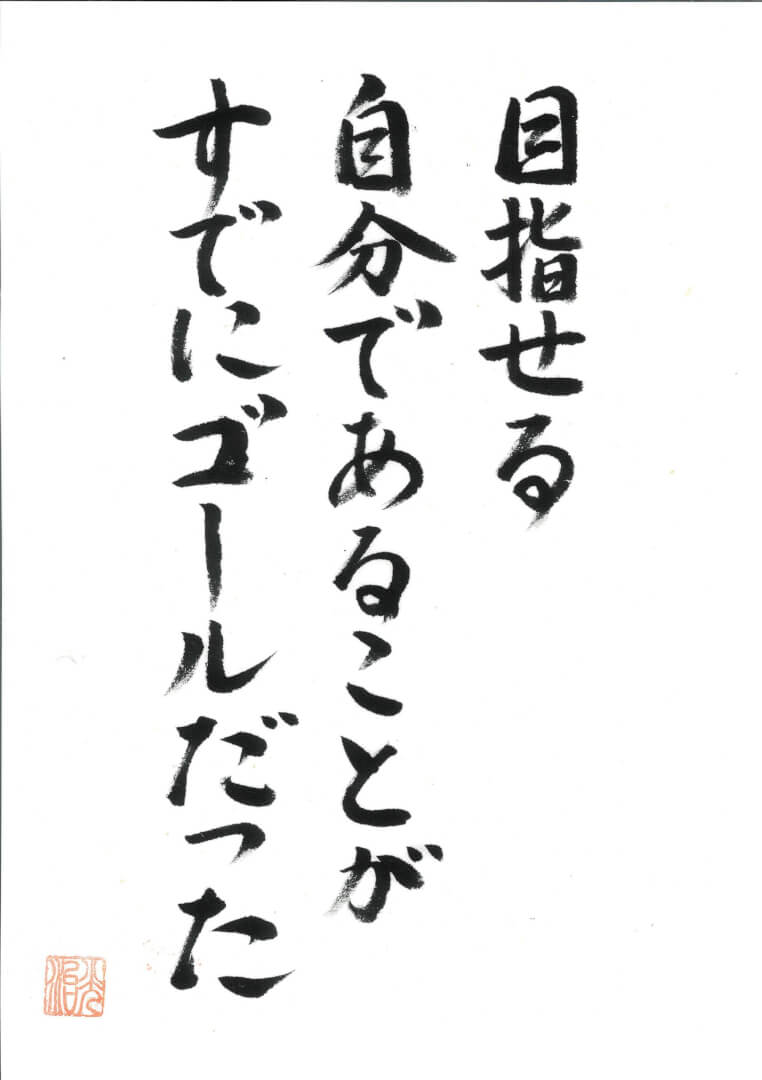 目指せる
自分であることが
すでにゴールだった